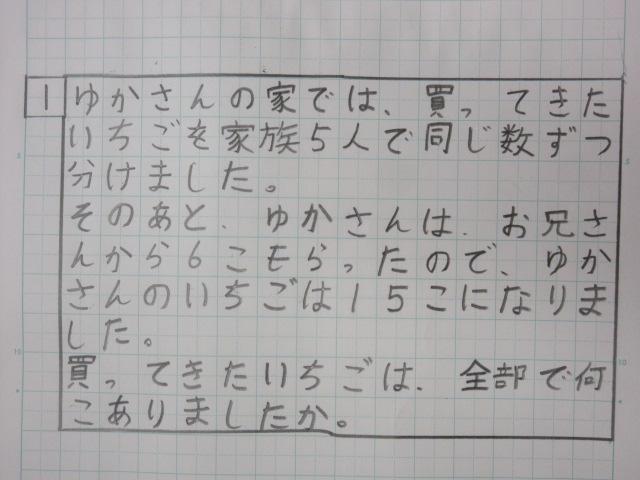 1 ゆかさんの家では、買ってきた
いちごを家族5人で同じ数ずつ
分けました。
そのあと、ゆかさんは、お兄さ
んから6こもらったので、ゆか
さんのいちごは15こになりま
した。
買ってきたいちごは、全部で何
こありましたか。